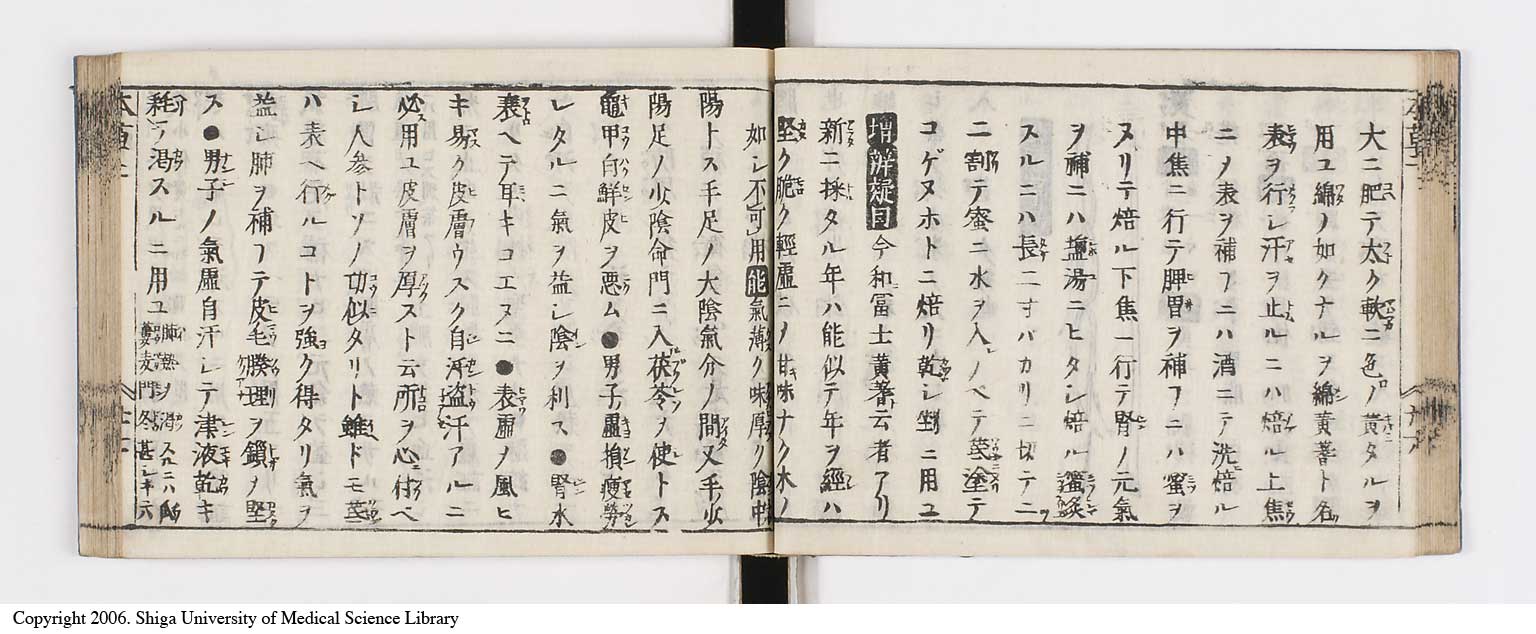 大ニ肥テ太ク軟ニ色ノ黄タルヲ
用ユ綿ノ如クナルヲ綿黄蓍ト名
表ヲ行シ汗ヲ止ルニハ焙ル上焦
ニノ表ヲ補フニハ酒ニテ洗焙ル
中焦ニ行テ脾胃ヲ補フニハ蜜ヲ
ヌリテ焙ル下焦ー行テ腎ノ元氣
ヲ補ニハ塩湯ニヒタシ焙ル蜜
スルニハ長二寸バカリニ切テ二
ニ割テ蜜ニ水ヲ入ノベテ塗テ
コゲヌホトニ焙リ乾シ剉ニ用ユ
増辨疑曰今和冨士黄蓍云者アリ
新ニ採タル年ハ能似テ年ヲ經ハ
堅ク脆ク輕虚ニノ甘味ナク木ノ
如シ不可用能氣薄ク味厚ク陰中
陽トス手足ノ大陰氣分ノ間又手少
陽足ノ少陰命門ニ入茯苓ノ使トス
龜甲白鮮皮ヲ悪ム●男子虚損瘦勞
レタルニ氣ヲ益シ陰ヲ利ス●腎水
衰ヘテ耳キコエヌニ●表虚ノ風ヒ
キ易ク皮膚ウスク自汗盗汗アルニ
必用ユ皮膚ヲ厚スト云所ヲ心付ベ
シ人参トソノ功似タリト雖ドモ
ハ表ヘ行ルコトヲ強ク得タリ氣ヲ
益シ肺ヲ補フテ皮毛腠理ヲ鎖ノ堅
ス●男子ノ氣虚自汗シテ津液乾キ
テ渇スルニ用ユ
Copyright 2006. Shiga University of Medical Science Library